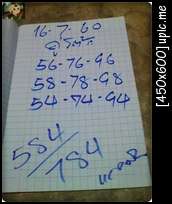 16-7-60
56-76-96
58-78-98
54-74-94
584/784
[450x600] upic.me